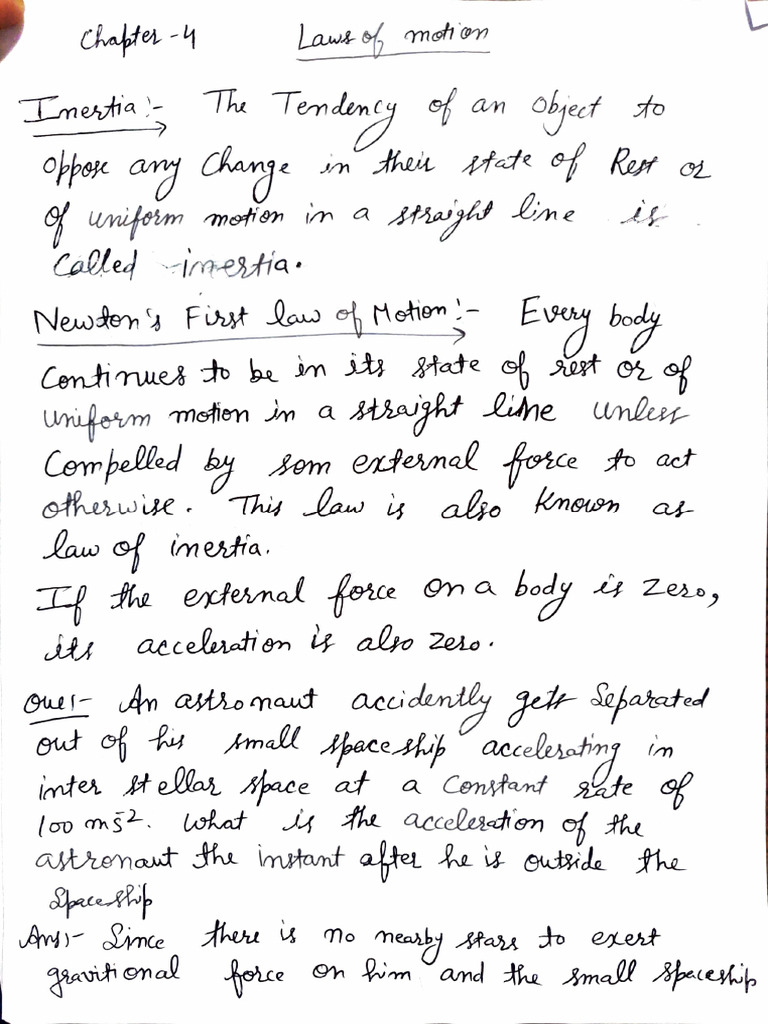 Chapter-4 Laws of motion
Inertia:- The Tendency of an object to
oppose any Change in their state of Rest or
of uniform motion in a straight line is
Called inertia.
Newton's First law of Motion:- Every body
Continues to be in its state of rest or of
uniform motion in a straight line unless
Compelled by som external force to act
otherwise. This law is also Known as
law of inertia.
If the external force on a body is Zero,
its acceleration is also zero.
Que:- An astronaut accidently gets Separated
out of his small spaceship accelerating in
inter stellar space at a Constant rate of
100 ms⁻². What is the acceleration of the
astronaut the instant after he is outside the
Spaceship
Ans:- Since there is no nearby stars to exert
gravitional force on him and the small spaceship